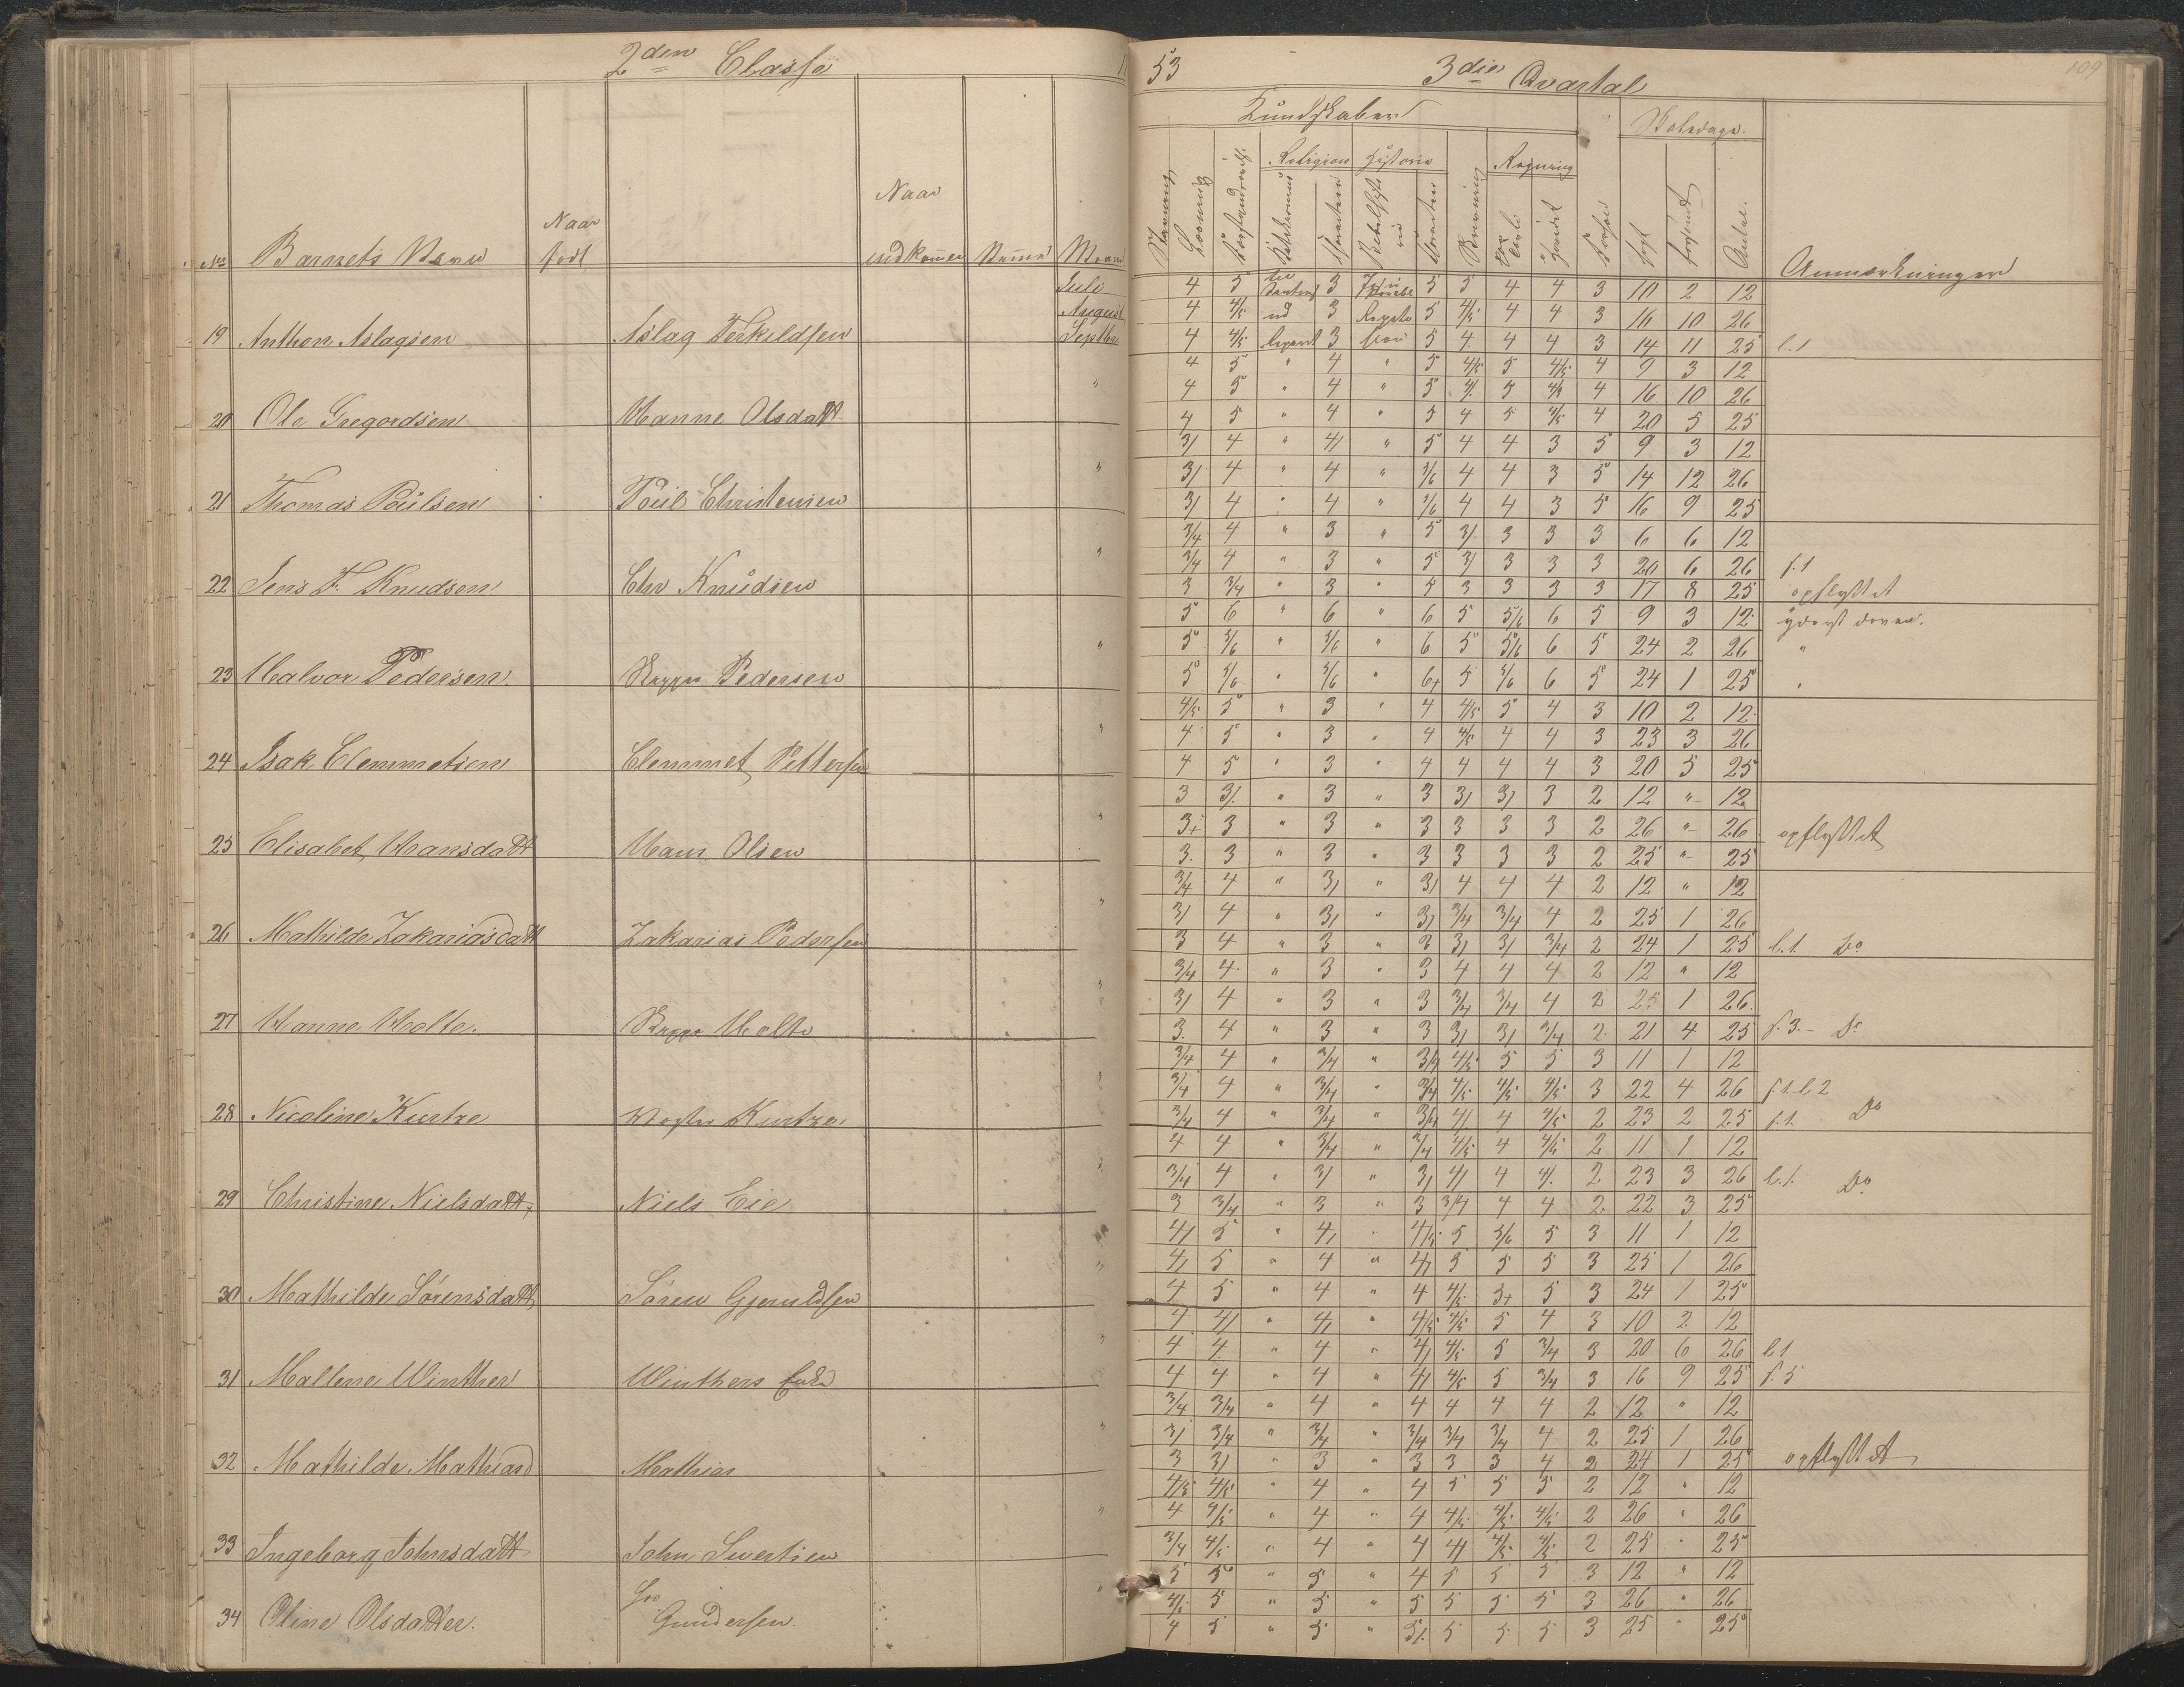 2den Classe
53
3die Qvartal
109
Kundskaber
Skoledage.
Religion
Historie
Regning
No
Barnets Navn
Naar
født
Naar
indkommen
Maaned
Anmærkninger
Juli 4 5 3 5 5 4 4 3 10 2 12
August 4 4/5 3 5 4/5 4 4 3 16 10 26
19 Anthon Aslagsen Aslag Terkildsen Septbr 4 4/5 3 5 4 4 4 3 14 11 25 l.1
4 5 " 4 " 5 4/5 5 4/5 4 9 3 12
4 5 " 4 " 5 4/ 5 4/5 4 16 10 26
20 Ole Gregordsen Hanne Olsdatt 4 5 " 4 " 5 4 5 4/5 4 20 5 25
3/ 4 " 4/ " 5 4 4 3 5 9 3 12
3/ 4 " 4 " 5/6 4 4 3 5 14 12 26
21 Thomas Poulsen Poul Christensen 3/ 4 " 4 " 5/6 4 4 3 5 16 9 25
3/4 4 " 3 " 5 3/ 3 3 3 6 6 12
3/4 4 " 3 " 5 3/ 3 3 3 20 6 26 f.1
22 Jens F. Knudsen Chr Knudsen 3 3/4 " 3 " 5 3 3 3 3 17 8 25 opflyttet
5 6 " 6 " 6 5 5/6 6 5 9 3 12 yderst doven.
5 5/6 " 5/6 " 6 5 5/6 6 5 24 2 26 "
23 Halvor Pedersen. Pedersen 5 5/6 " 5/6 " 6+ 5 5/6 6 5 24 1 25 "
4/5 5 " 3 " 4 4/5 5 4 3 10 2 12
4 5 " 3 " 4 4/5 4 4 3 23 3 26
24 Isak Clemmetsen Clemmet Pettersen 4 5 " 3 " 4 4 4 4 3 20 5 25
3 3/ " 3 " 3 3/ 3/ 3 2 12 " 12
3+ 3 " 3 " 3 3 3 3 2 26 " 26 opflyttet
25 Elisabet Hansdatt Hans Olsen 3 3 " 3 " 3 3 3 3 2 25 " 25
3/4 4 " 3/ " 3/ 4 4 4 2 12 " 12
3/ 4 " 3/ " 3/ 3/4 3/4 4 2 25 1 26
26 Mathilde Zakariasdatt Zakarias Pedersen 3 4 " 3 " 3 3/ 3/ 3/4 2 24 1 25 l.1. Do
3/4 4 " 3 " 3 4 4 4 2 12 " 12
3/ 4 " 3 " 3 3/4 3/4 4 2 25 1 26
27 Hanne Holte. Holte 3 4 " 3 " 3 3/ 3/ 3/4 2 21 4 25 f.3. Do
3/4 4 " 3/4 " 3/4 4/5 5 5 3 11 1 12
3/4 4 " 3/4 " 3/4 4/5 4/5 4/5 3 22 4 26 f.1.l.2
28 Nicoline Kurtze Kurtze 3/4 4 " 3/4 " 3/4 4/ 4 4/5 2 23 2 25 f.1. Do
4 4 " 3/4 " 3/4 4/5 4 4/5 2 11 1 12
3/4 4 " 3/ " 3/ 4/ 4 4/ 2 23 3 26 l.1. Do
29 Christine Nielsdatt, Niels Eie 3 3/4 " 3 " 3 3/4 4 4 2 22 3 25
4/ 5 " 4/ " 4/5 5 5/6 5 3 11 1 12
4/ 5 " 4 " 4/ 5 5 5 3 25 1 26
30 Mathilde Sørensdatt, Søren Gjeruldsen 4 5 " 4 " 4 4/5 5+ 5 3 24 1 25
4 4/ " 4/ " 4/5 4/5 5 4 3 10 2 12
4 4 " 4 " 4/ 4/5 5 3/4 3 20 6 26 l.1
31 Mallene Winther Winthers Enke 4 4 " 4 " 4/ 4/5 5 3/4 3 16 9 25 f.5
3/4 3/4 " 4 " 4 4 4 4 2 12 " 12
3/ 3/4 " 3/4 " 3/4 3/4 3/4 4 2 25 1 26
32 Mathilde Mathiasd Mathias 3 3/ " 3 " 3 3 3 4 2 24 1 25 opflyttet
4/5 4/5 " 4 " 4 5 5 5 2 12 " 12
4 4/5 " 4 " 4 4/5 4/5 4/5 2 26 " 26
33 Ingeborg Johnsdatt John Sivertsen 3/4 4/5 " 4 " 4 4/ 4/5 4/5 2 25 " 25
5 5 " 5 " 4 5 5 5 3 12 " 12
4/5 5 " 5 " 5 5 5 5 3 26 " 26
34 Oline Olsdatter. Gundersen. 4 5 " 5 " 5/ 5 5 5 3 25 " 25